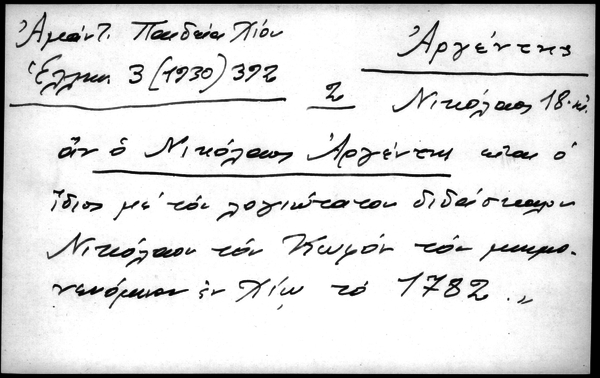 Ἀμάντ. Παιδεία Χίου
Ἑλλην. 3 (1930) 392
Ἀργέντης
2
Νικόλαος 18. αἰ.
ἂν ὁ Νικόλαος Ἀργέντης εἶναι ὁ
ἴδιος μὲ τὸν λογιώτατον διδάσκαλον
Νικόλαον τὸν Κωφὸν τὸν μνημο-
νευόμενον ἐν Χίῳ τὸ 1782.,,